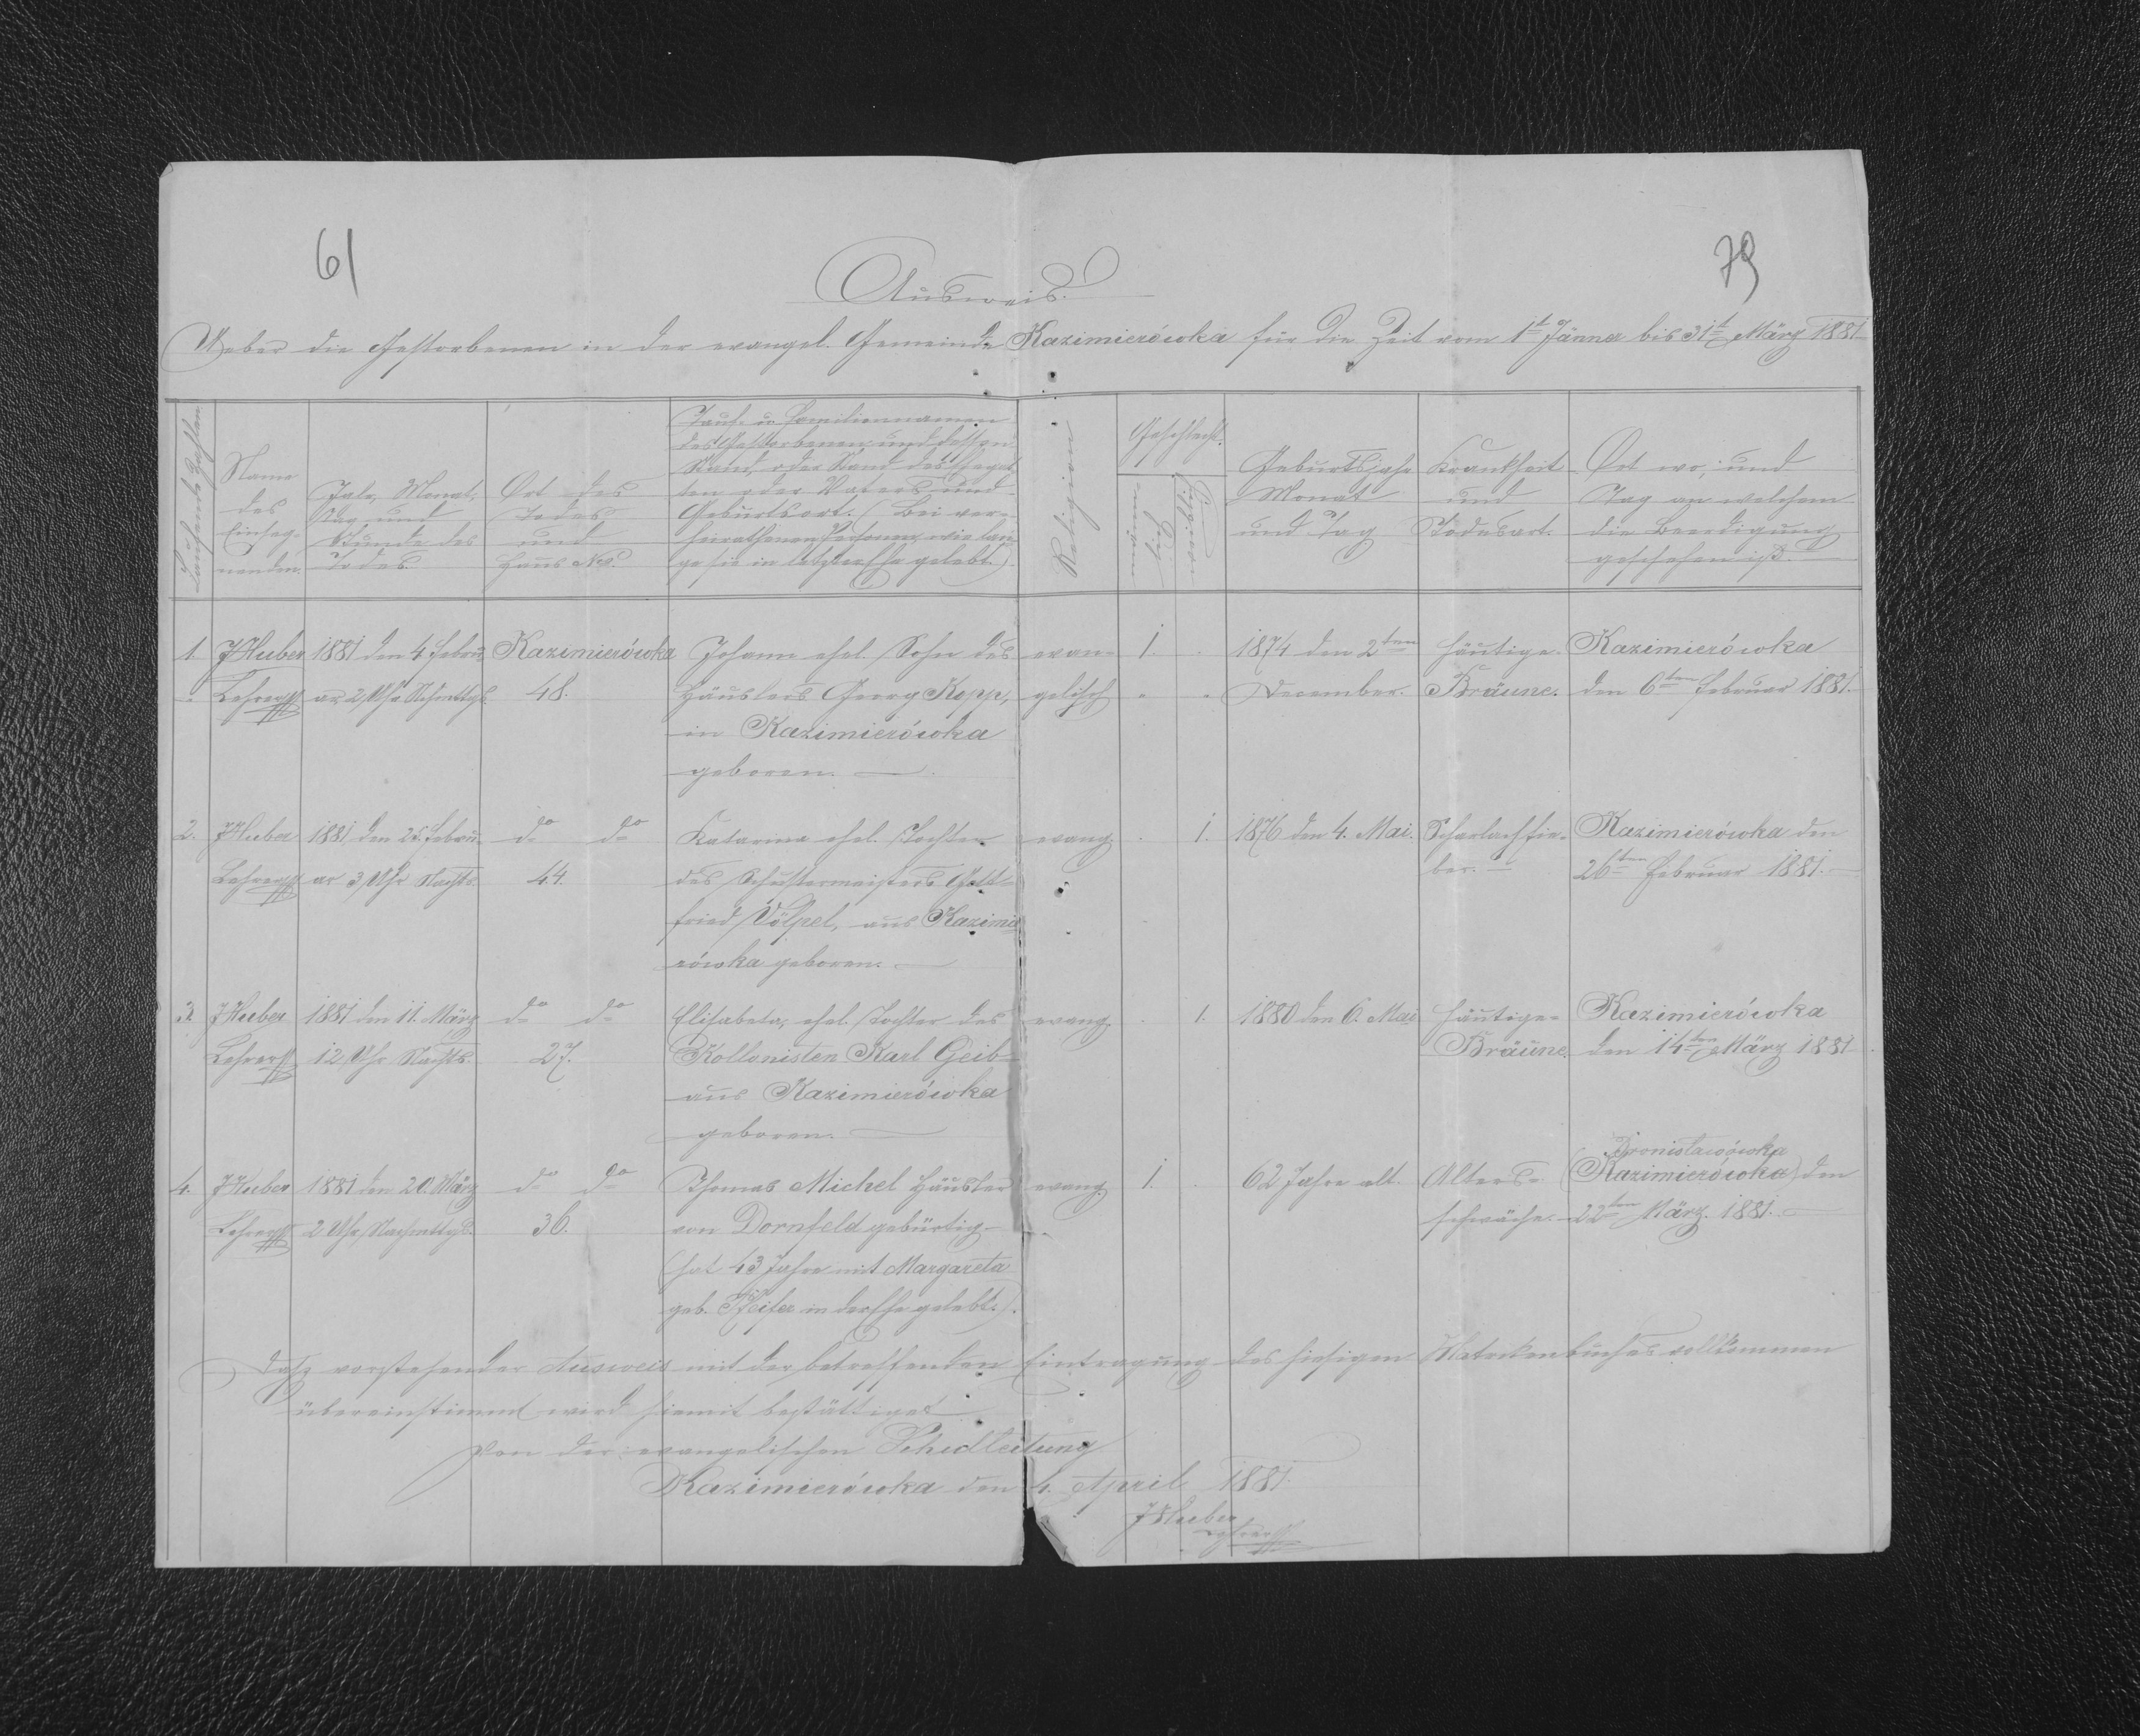 61
79
Ausweis.
Ueber die Gestorbenen in der evangel. Gemeinde Kazimierówka für die Zeit vom 1t Jänner bis 31t März 1881
Laufende Zahlen
Name
des
Einseg-
nenden.
Jahr, Monat,
Tag und
Stunde des
Todes.
Ort des
Todes
und
Haus No.
Tauf- u Familiennamen
des Gestorbenen und dessen
Stand, oder Stand des Ehegat-
ten oder Vaters und
Geburtsort. (Bei ver-
heirathenen Personen, wie lan-
ge sie in letzter Ehe gelebt.)
Religion
Geschlecht.
männ-
lich
weiblich
Geburtsjahr
Monat
und Tag
Krankheit
und
Todesart.
Ort wo, und
Tag an welchem
die Beerdigung
geschehen ist.
1. JHuber 1881 den 4 Febru- Kazimierówka Johann ehel. Sohn des evan- 1. 1874 den 2ten häutige- Kazimierówka
Lehrer ar 2 Uhr Nachmttgs. 48. Häuslers Georg Kopp, gelisch December. Bräune. den 6ten Februar 1881.
in Kazimierówka
geboren.
2. JHuber 1881 den 25. Febru- do do Katarina ehel. Tochter evang. 1. 1876 den 4. Mai. Scharlachfie- Kazimierówka den
Lehrer ar 3 Uhr Nachts. 44. des Schustermeisters Gott- ber. 26ten Februar 1881.
fried Völpel, aus Kazimie
rówka geboren.
3. JHuber 1881 den 11. März do do Elisabeta, ehel. Tochter des evang. 1. 1880 den 6. Mai häutige- Kazimierówka
Lehrer 12 Uhr Nachts. 27. Kollonisten Karl Geib- Bräune. den 14ten März 1881
aus Kazimierówka
geboren.
Bronislawówka
4. JHuber 1881 den 20. März do do Thomas Michel Häusler evang. 1. 62 Jahre alt. Alters- (Kazimierówka) den
Lehrer 2 Uhr Nachmttgs. 36. von Dornfeld gebürtig- schwäche. 22ten März. 1881.
(hat 43 Jahre mit Margareta
geb. Pfeifer in der Ehe gelebt.).
Dass vorstehender Ausweis mit der betreffenden Eintragung des hiesigen Matrikenbuches vollkommen
übereinstimmt wird hiemit bestättiget
Von der evangelischen Schulleitung
Kazimierówka den 4. April 1881.
JHuber
Lehrer